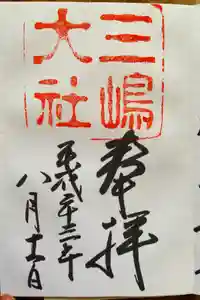 三嶋
大社
奉拝
平成二十二年
八月十一日